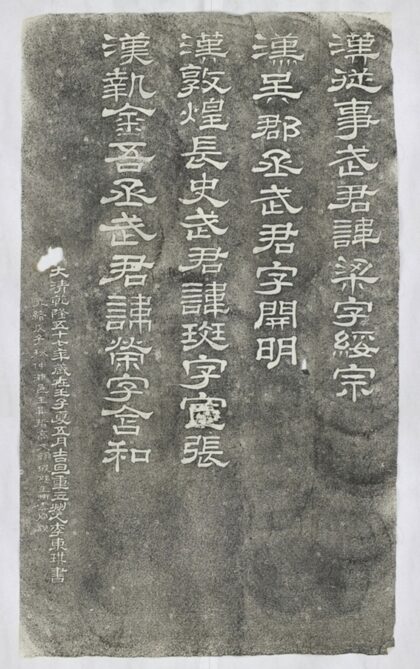 漢從事武君諱梁字綏宗
漢吳郡丞武君字開明
漢敦煌長史武君諱斑字宣張
漢執金吾丞武君諱榮字含和
大清乾隆五十七年歲在壬子夏五月吉旦重立李東琪書